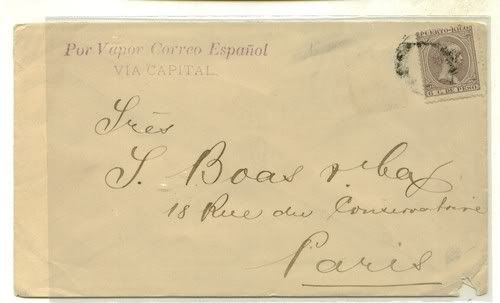 Por Vapor Correo Español
VIA CAPITAL.
PUERTO-RICO
6 C. DE PESO
Srés
S. Boas y Ca
18 Rue du Conservatoire
Paris